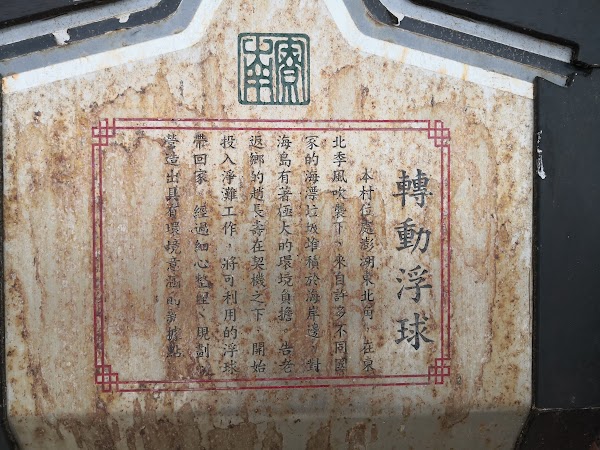 南寮
轉動浮球
本村位處澎湖東北角，在東
北季風吹襲下、來自許多不同國
家的海漂垃圾堆積於海岸邊，對
海島有著極大的環境負擔，告老
返鄉的趙長壽在契機之下、開始
投入淨灘工作，將可利用的浮球
帶回家，經過細心整理、規劃，
營造出具有環境意涵的新據點